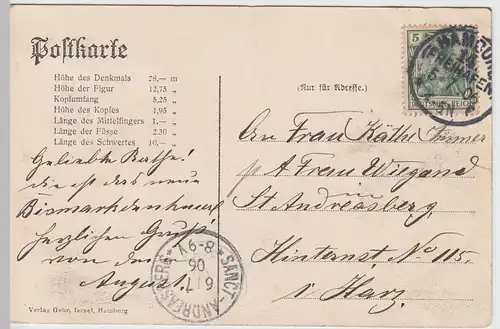 Postkarte
Höhe des Denkmals 28,— m
Höhe der Figur 12,75 „
Kopfumfang 5,25 „
Höhe des Kopfes 1,95 „
Länge des Mittelfingers 1,— „
Länge der Füsse 2.30 „
Länge des Schwertes 10,— „
(Nur für Adresse.)
5 5
DEUTSCHES REICH
HAMBURG
FREIHAFEN
Geliebte Käthe!
die ist das neue
Bismarkdenkmal
herzlichen Gruß
von der
August.
An Frau Käthe
p A Frau Wiegand
in
St Andreasberg
Hinterstr No 115.
i Harz
SANCT-ANDREASBERG
6/7
06
8-9V.
Verlag Gebr. Israel, Hamburg